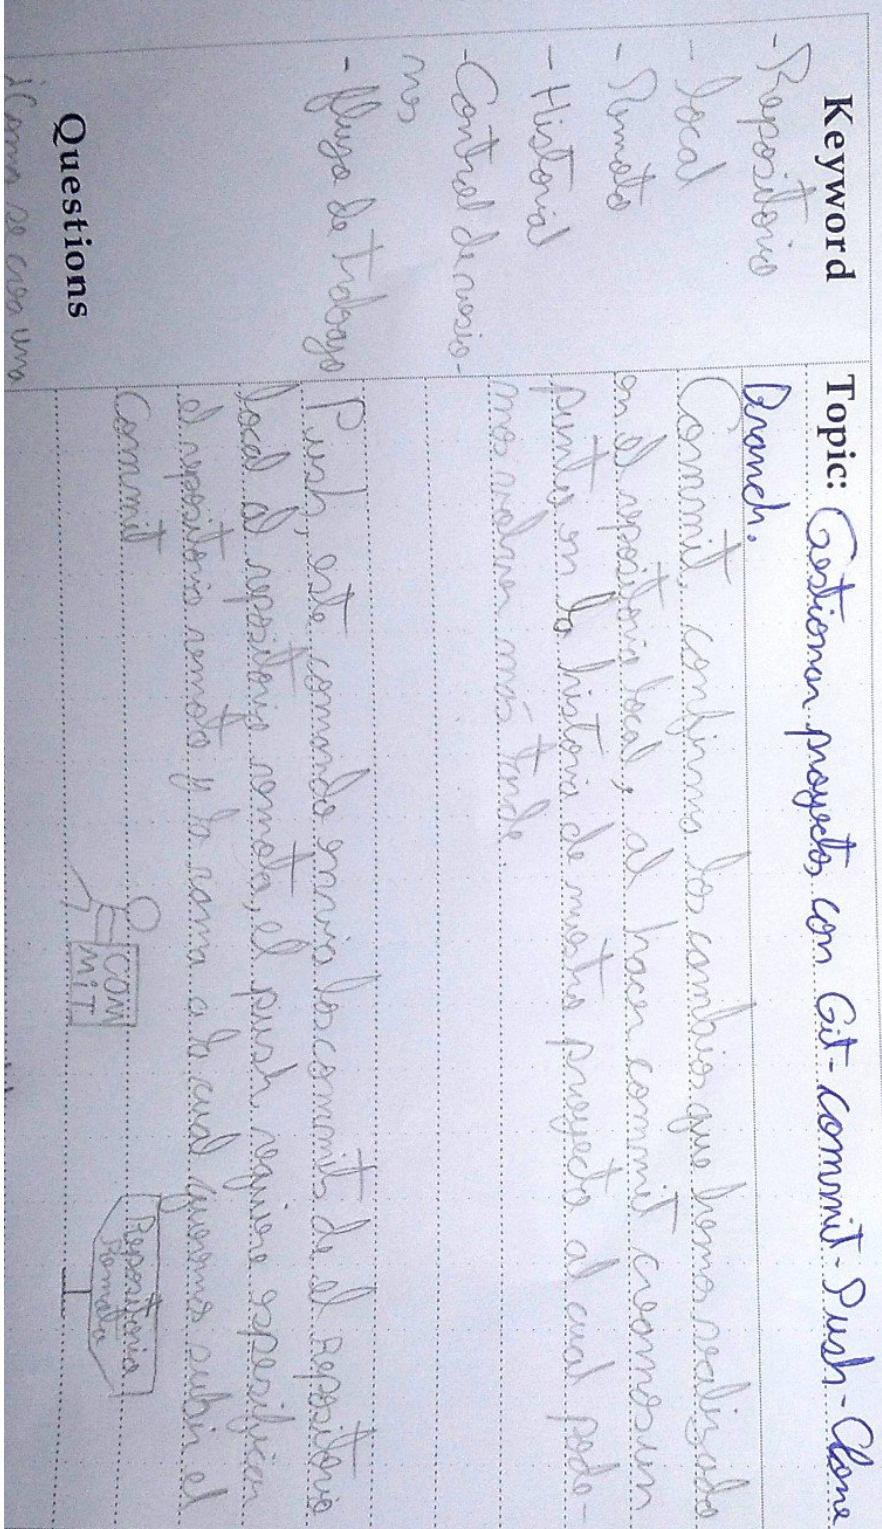 Keyword
- Repositorio
- local
- Remoto
- Historial
- Control de versio-
nes
- flujo de trabajo
Questions
¿Como se crea una
Topic: Gestionar proyectos con Git - commit - Push - Clone
Branch.
Commit, confirma los cambios que hemos realizado
en el repositorio local, al hacer commit creamos un
punto en la historia de nuestro proyecto al cual pode-
mos volver más tarde.
Push, este comando envia los commits de el repositorio
local al repositorio remoto, el push requiere espesificar
el repositorio remoto y la rama a la cual queremos subir el
commit
COM
MiT
Repositorio
Remoto